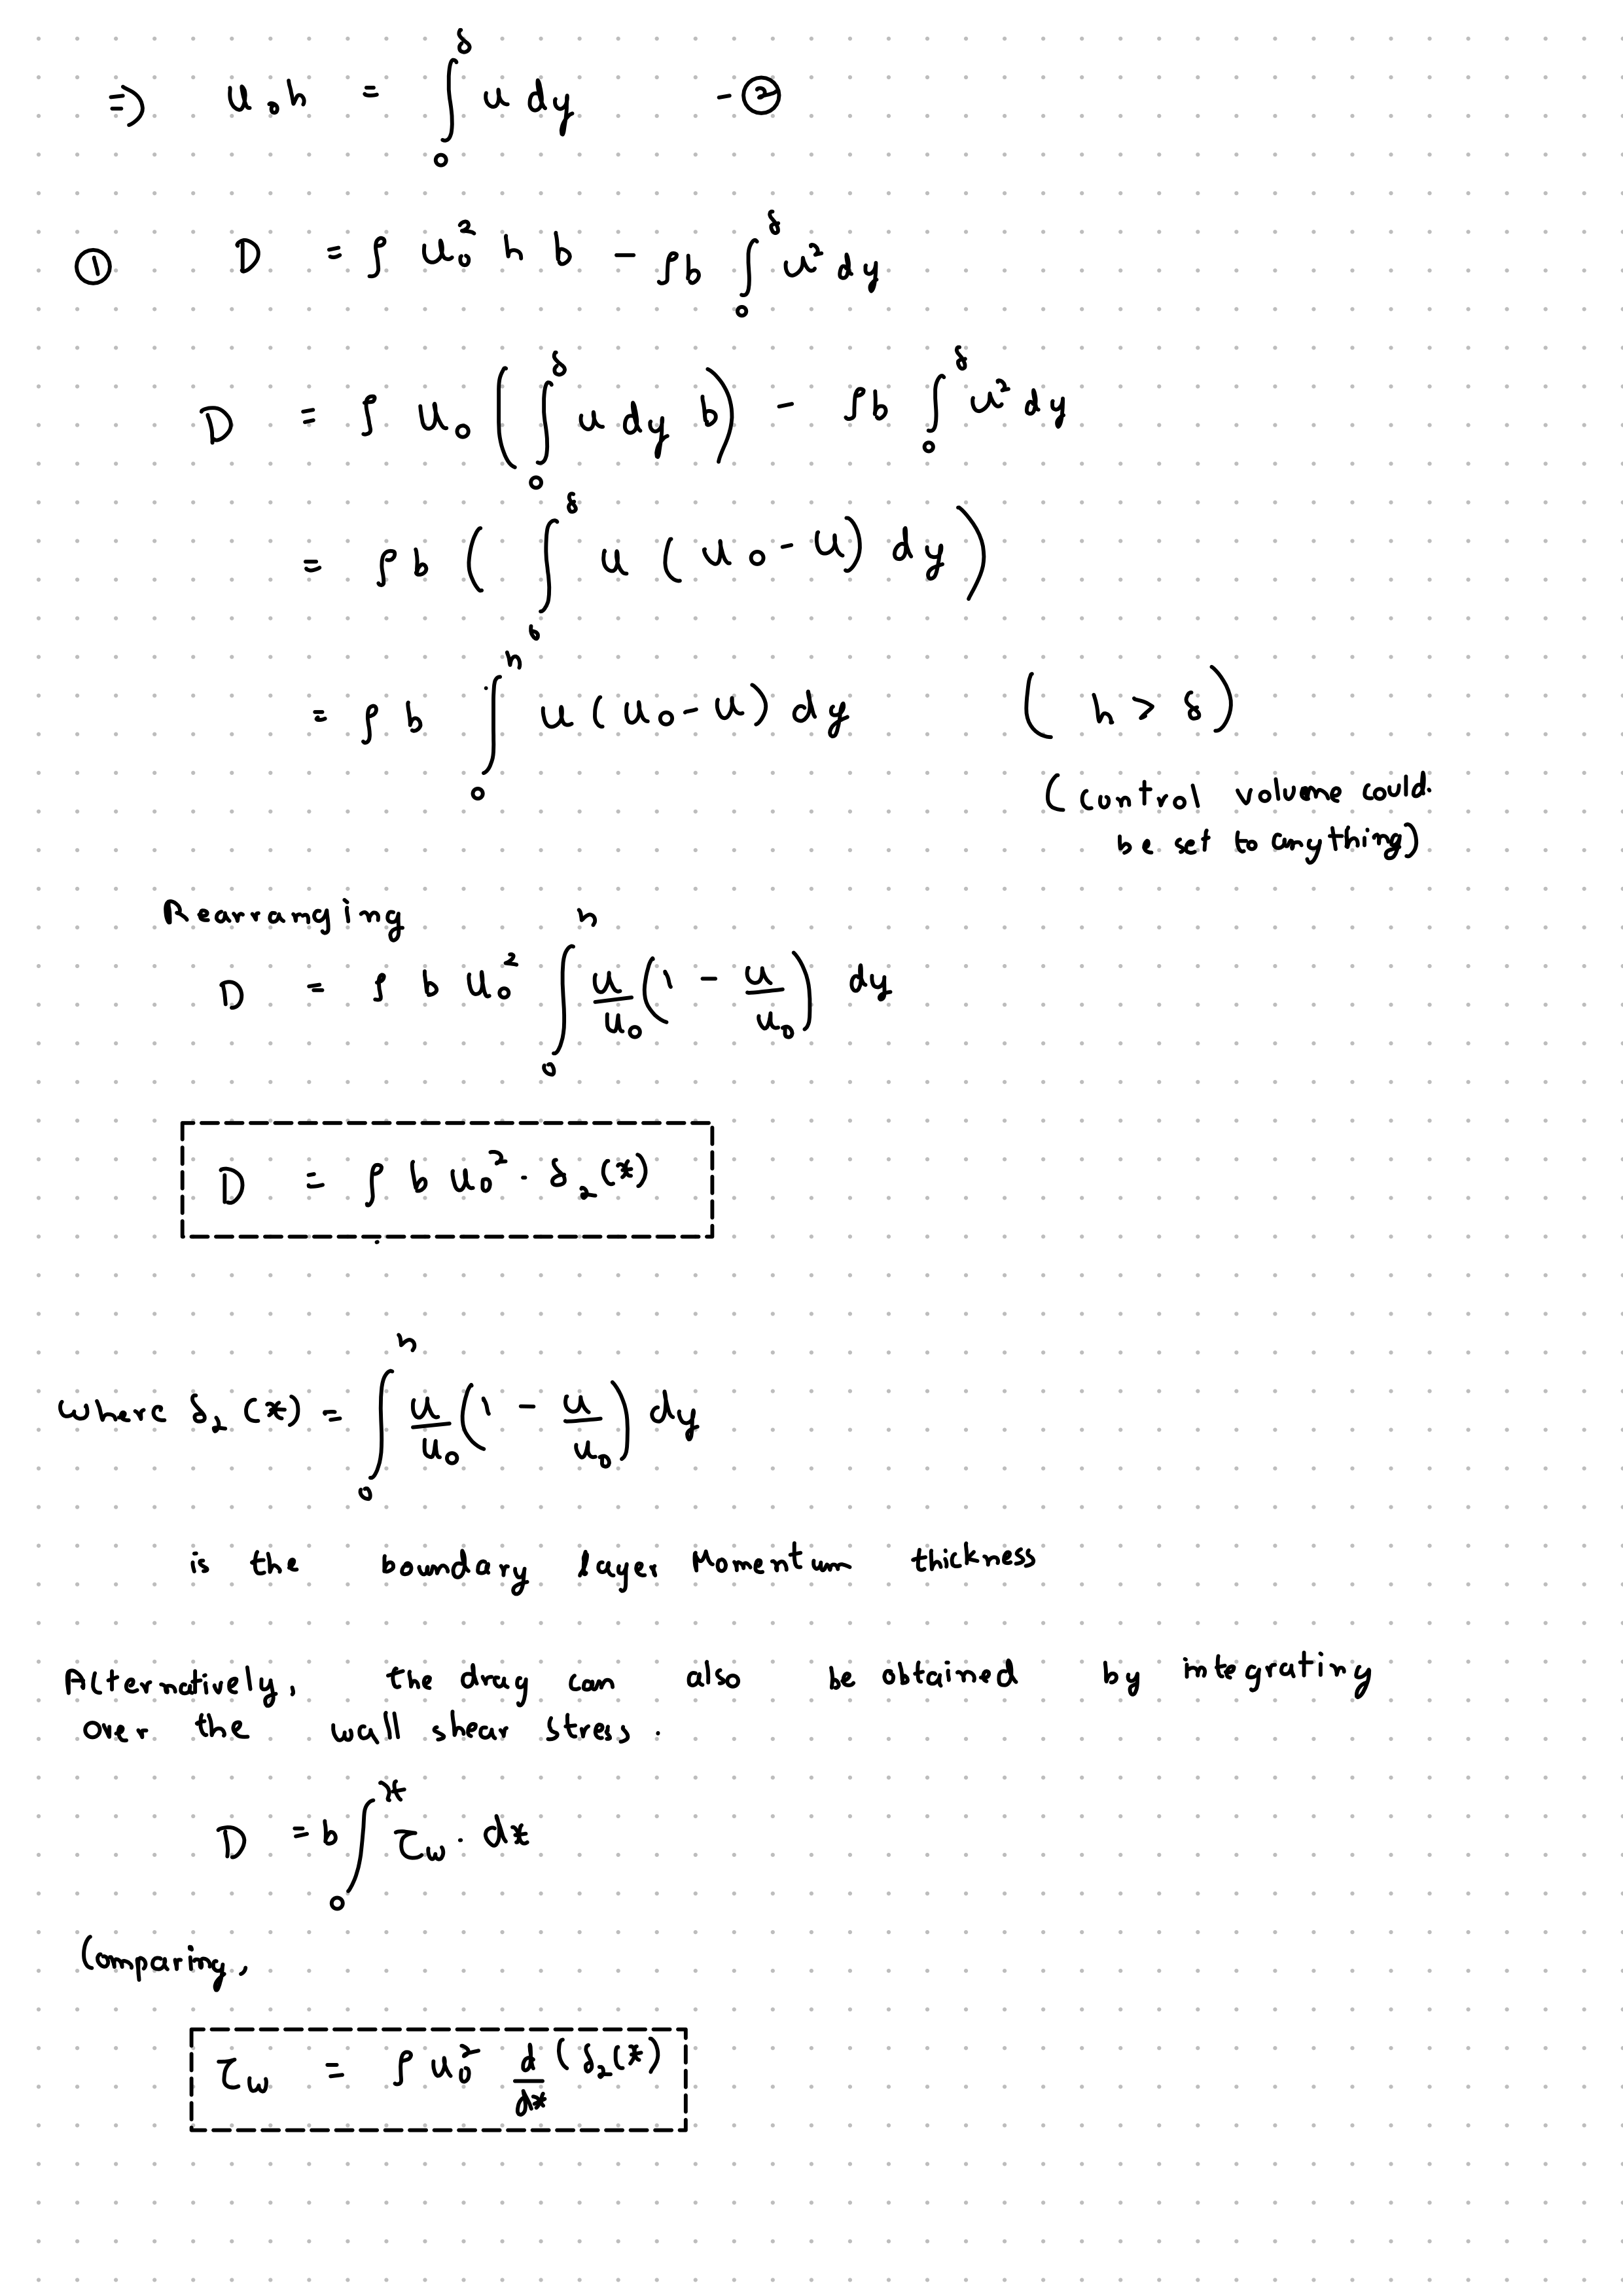 ⇒ u₀h = ∫₀^δ u dy - ②
① D = ρ u₀² h b - ρb ∫₀^δ u² dy
D = ρ u₀ ( ∫₀^δ u dy b ) - ρb ∫₀^δ u² dy
= ρ b ( ∫₀^δ u ( u₀ - u ) dy )
= ρ b ∫₀^h u ( u₀ - u ) dy ( h > δ )
( control volume could
be set to anything )
Rearranging
D = ρ b u₀² ∫₀^h u/u₀ ( 1 - u/u₀ ) dy
D = ρ b u₀² · δ₂ (x)
where δ₂ (x) = ∫₀^h u/u₀ ( 1 - u/u₀ ) dy
is the boundary layer Momentum thickness
Alternatively, the drag can also be obtained by integrating
over the wall shear stress.
D = b ∫₀^x τw · dx
Comparing,
τw = ρ u₀² d/dx ( δ₂(x)